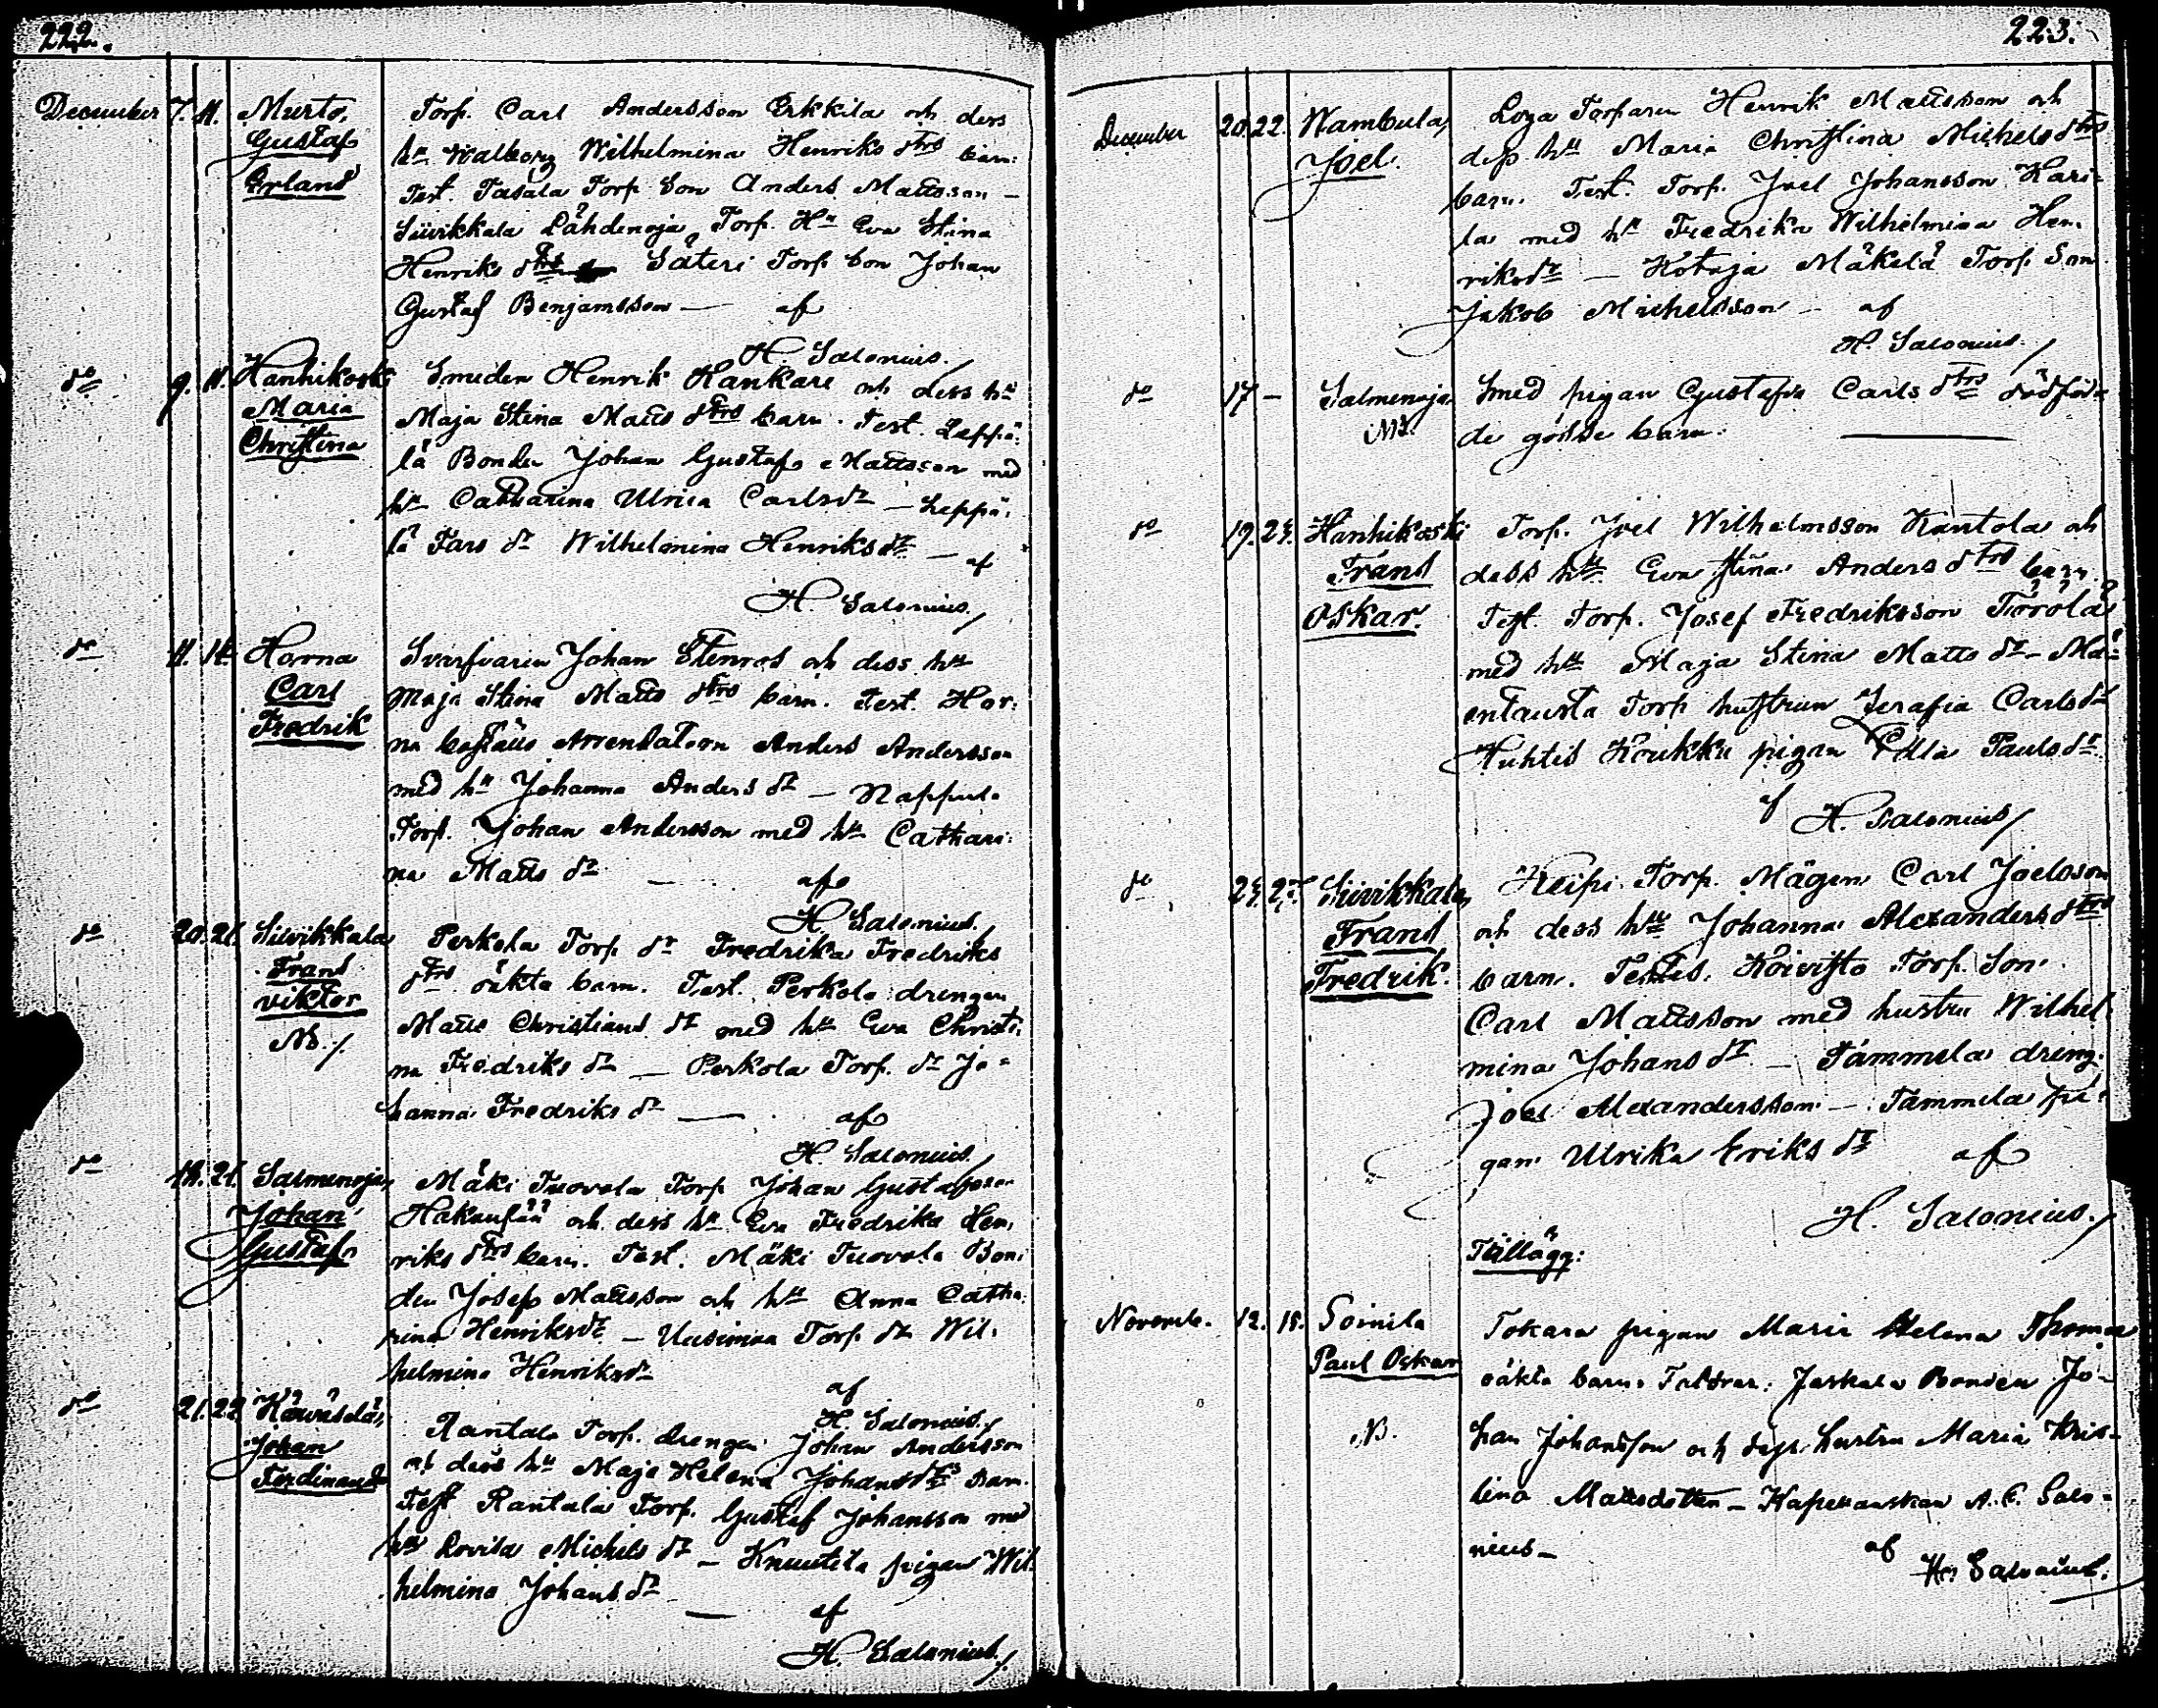 222.
December 7. 11. Murto, Torp. Carl Andersson Erkkila och dess
Gustaf hu Walborg Wilhelmina Henriks dtrs barn:
Erland Test. Tasala Torp. Son Anders Mattsson —
Siivikkala Lähdenoja Torp. Hu Eva Stina
Henriks dtr Säteri Torp. Son Johan
Gustaf Benjamsson — af
H. Salonius.
do 9. 11. Hanhikoski Smeden Henrik Kankare och dess hu
Maria Maja Stina Matts dtrs barn. Test. Leppä-
Christina lä Bonden Johan Gustaf Mattsson med
hu Catharina Ulrica Carlsdr — Leppä-
lä Fars dr Wilhelmina Henriksdr — af
H. Salonius.
do 11. 14. Horna Svarfvaren Johan Stenros och dess hu
Carl Maja Stina Matts dtrs barn. Test. Hor-
Fredrik na bostäus Arrendatorn Anders Andersson
med hu Johanna Anders dr — Nappula
Torp. Johan Andersson med hu Cathari-
na Matts dr — af
H. Salonius.
do 20. 21. Siivikkala Perkola Torp. dr Fredrika Fredriks
Frans dtrs oäkta barn. Test. Perkola drengen
Viktor Matts Christians dr med hu Eva Christi-
NB. na Fredriks dr — Perkola Torp. dr Jo-
hanna Fredriks dr — af
H. Salonius.
do 18. 21. Salmenoja, Mäki Tuovola Torp Johan Gustafsson
Johan Hakanpää och dess hu Eva Fredrika Hen-
Gustaf riks dtrs barn. Test. Mäki Tuovola Bon-
den Josef Mattsson och hu Anna Catha-
rina Henriksdr — Uusimaa Torp. dr Wil-
helmina Henriksdr
af
H. Salonius.
do 21. 22. Rantala Torp. drengen Johan Andersson
Johan och dess hu Maja Helena Johansdtrs barn.
Ferdinand Test Rantala Torp. Gustaf Johansson med
hu Lovisa Michels dr — Knuutila pigan Wil-
helmina Johans dr
— af
H. Salonius.
223.
December 20. 22. Wambula, Loja Torparen Henrik Mattsson och
Joel. dess hu Maria Christina Michelsdtrs
barn. Test. Torp. Joel Johansson Kari-
la med hu Fredrika Wilhelmina Hen-
riksdr — Kotoja Mäkelä Torp. Son
Jakob Michelsson — af
H. Salonius.
do 17 — Salmenoja Smed pigan Gustafva Carls dtrs dödföd-
NB. de gosse barn. —
do 19. 24. Hanhikoski Torp. Joel Wilhelmsson Kantola och
Frans dess hu Eva Stina Anders dtrs barn.
Oskar. Test. Torp. Josef Fredriksson Törölä
med hu Maja Stina Matts dr — Mä-
entausta Torp. hustrun Serafia Carlsdr
Huhtis Koukku pigan Ulla Paulsdr
af H. Salonius
do 24. 27. Siivikkala, Keipi Torp. Mågen Carl Joelsson
Frans och dess hu Johanna Alexanders dtrs
Fredrik. barn. Testis. Koivisto Torp. Son
Carl Mattsson med hustru Wilhel-
mina Johans dr — Tammela dreng.
Joel Alexandersson — Tammela pi-
gan Ulrika Eriks dr af
H. Salonius.
Tillägg:
Novemb. 12. 18. Soinila Tokara pigan Maria Helena Thomas
Paul Oskar oäkta barn. Faddrar: Jaskala Bonden Jo-
NB. han Johansson och dess hustru Maria Kris-
tina Mattsdotter — Kaplanskan A. C. Salo-
nius — af
H. Salonius.